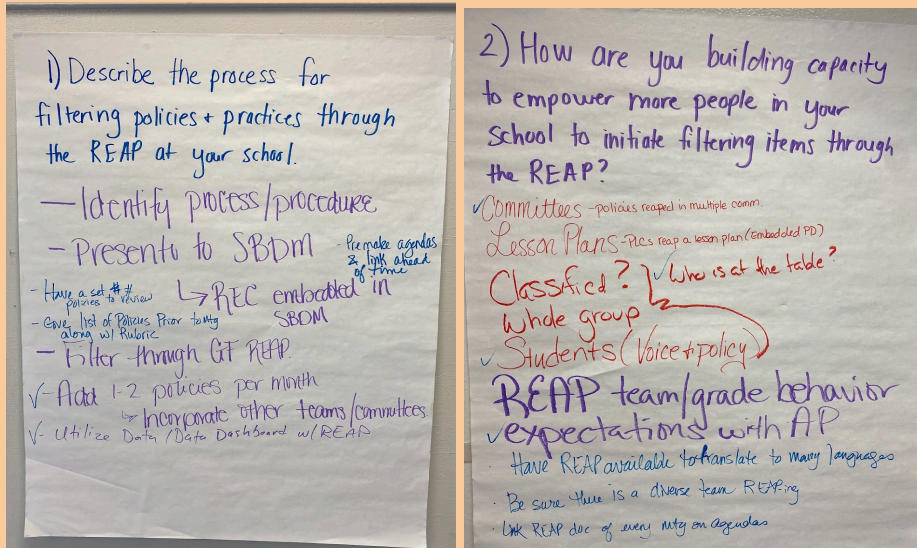 1) Describe the process for
filtering policies + practices through
the REAP at your school.
— Identify process/procedure
- Present to SBDM
- Premake agendas
& link ahead
of time
- Have a set # #
policies to review
↳ REC embedded in
SBDM
- Give list of Policies Prior to Mtg
along w/ Rubric
- Filter through GF REAP.
✓- Add 1-2 policies per month
↳ Incorporate other teams/committees
✓- Utilize Data/Data Dashboard w/REAP
2) How are you building capacity
to empower more people in your
school to initiate filtering items through
the REAP?
✓Committees - policies reaped in multiple comm.
Lesson Plans - PLCs reap a lesson plan (Embedded PD)
Classified? ✓ Who is at the table?
Whole group
✓ Students (Voice + policy)
REAP team/grade behavior
✓expectations with AP
· Have REAP available to translate to many languages
· Be sure there is a diverse team REAP-ing
· Link REAP doc of every mtg on agendas